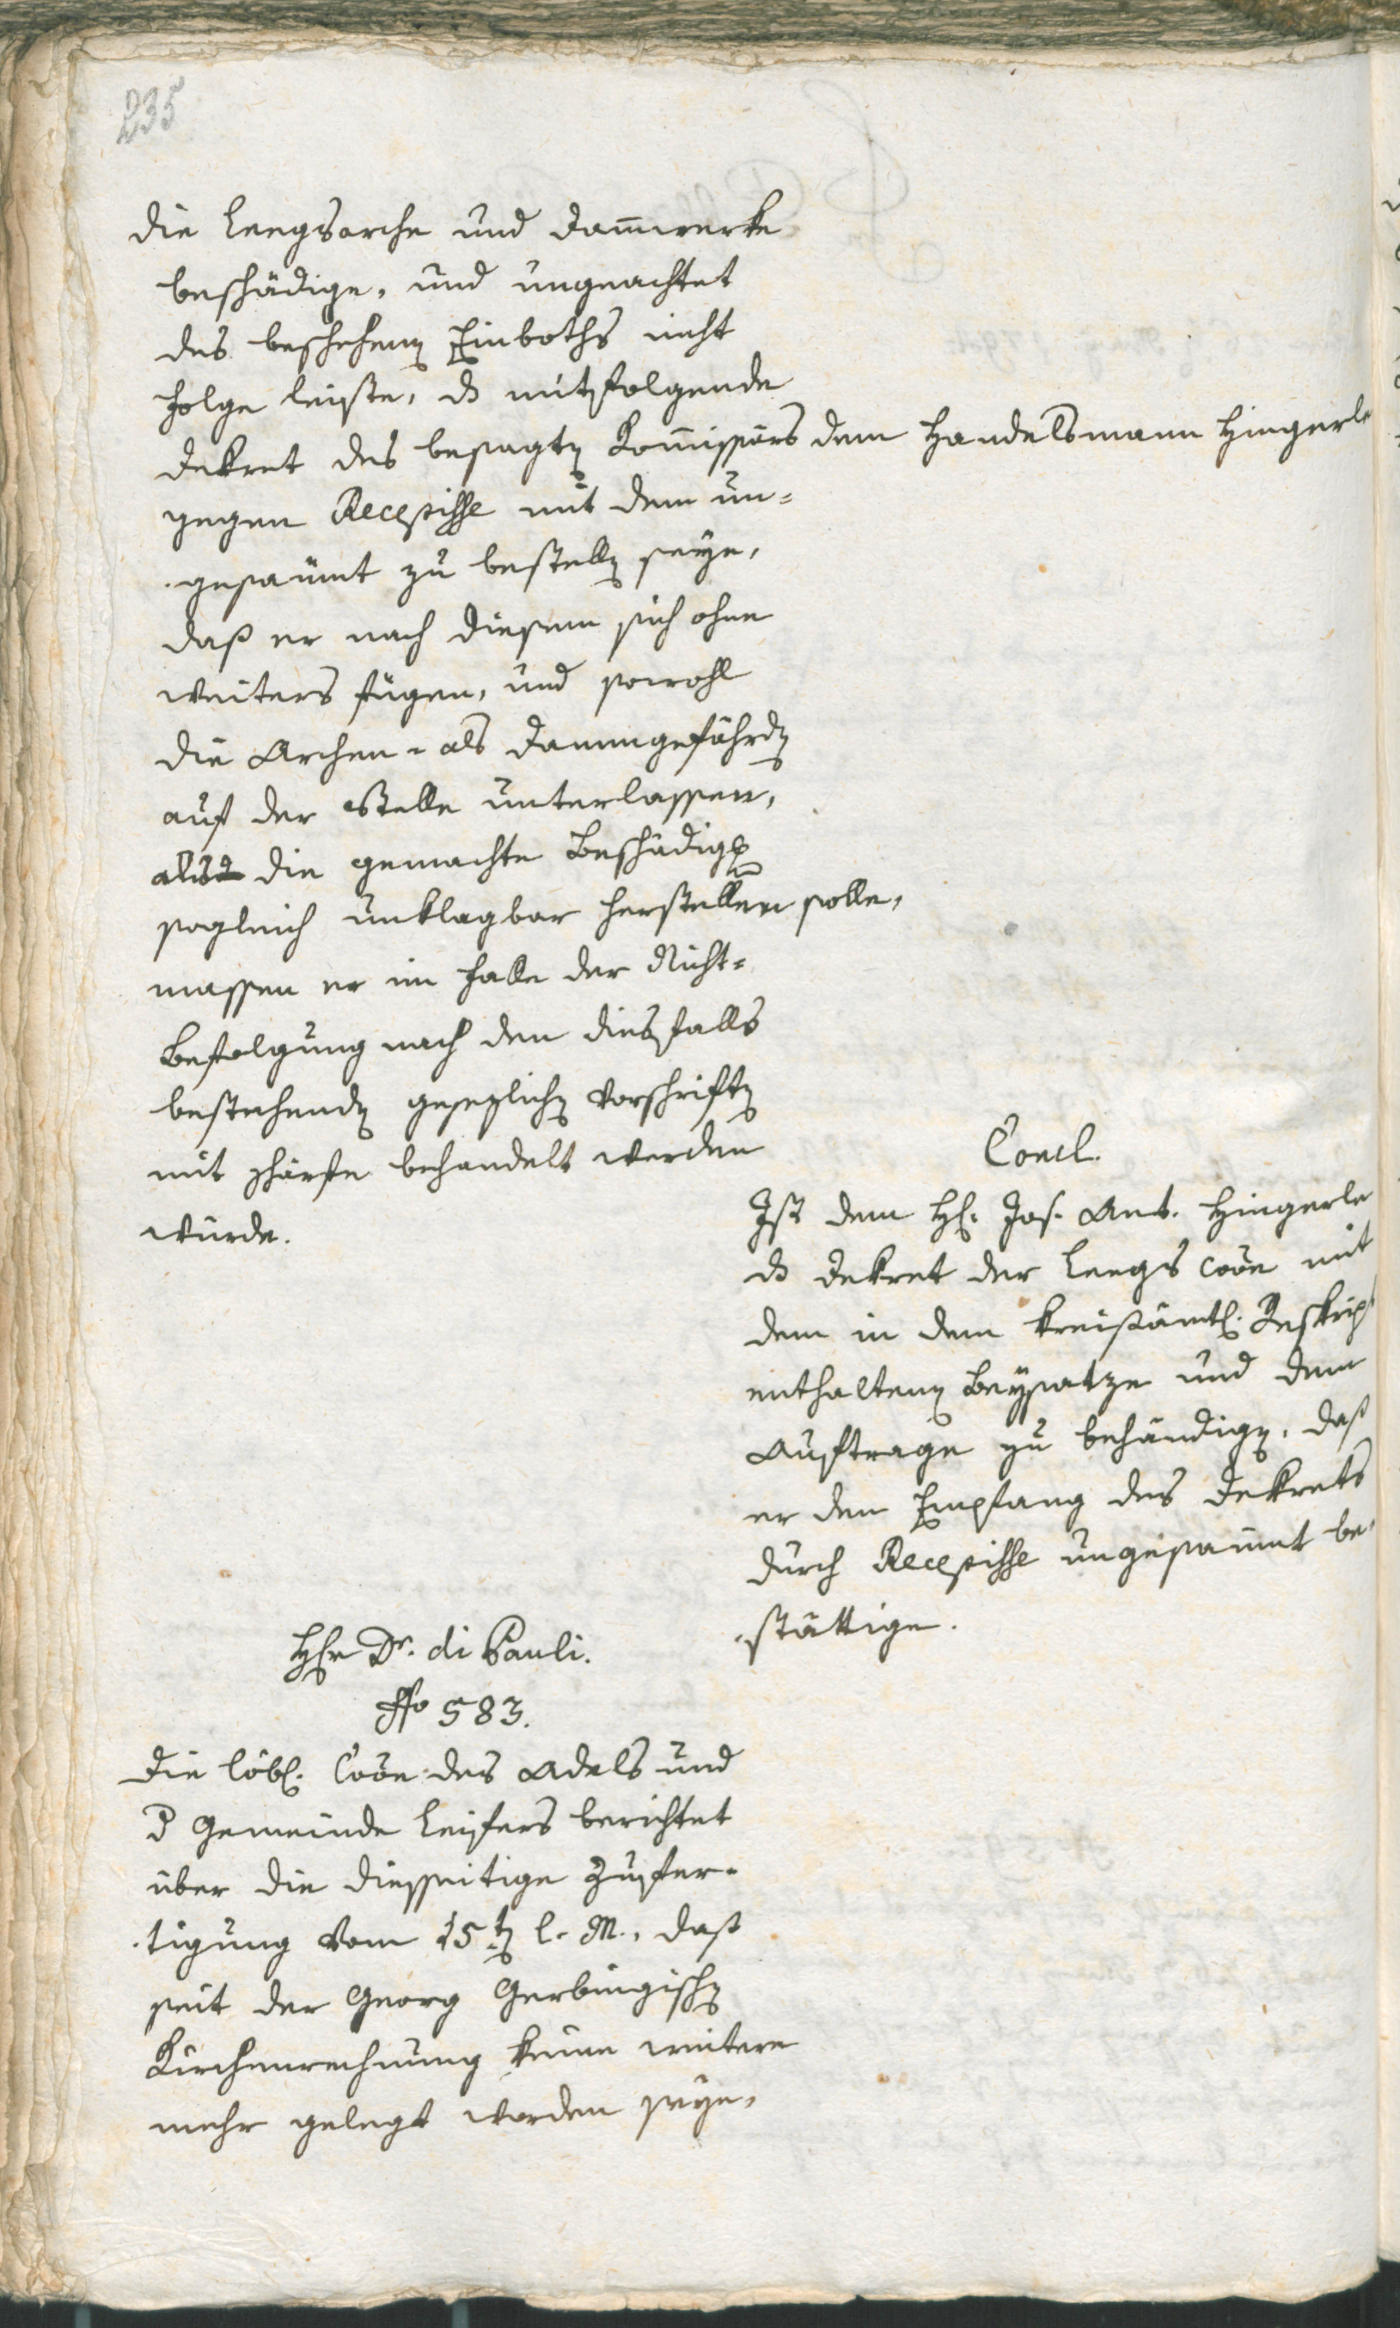 235
die Leegsarche und Dam̅werke
beschädige, und ungeachtet
des beschehenen Einboths nicht
Folge leiste, ds mitfolgende
Dekret des besagten Kom̅issärs dem Handelsmann Hingerle
gegen Recepisse mit dem un-
gesäumt zu bestellen seye,
daß er nach diesem sich ohne
weiters fügen, und sowohl
die Archen- als Dammgefährden
auf der Stelle unterlassen,
als die gemachte Beschädigg
sogleich unklagbar herstellen solle,
massen er im Falle der Nicht-
befolgung nach den diesfalls
bestehenden gesezlichen Vorschriften
mit Schärfe behandelt werden
würde.
Concl.
Ist dem H. Jos. Ant. Hingerle
ds Dekret der Leegs Coön mit
dem in dem kreisämtl. Reskript
enthaltenen Beysatze und dem
Auftrage zu behändigen, daß
er den Empfang des Dekrets
durch Recepisse ungesäumt be-
stättige.
Hr Dr. di Pauli.
No 583.
Die löbl. Coön des Adels und
d Gemeinde Leifers berichtet
über die diesseitige Zufer-
tigung vom 15ten l. M., daß
seit der Georg Gerbingischen
Kirchenrechnung keine weitere
mehr gelegt worden seye,